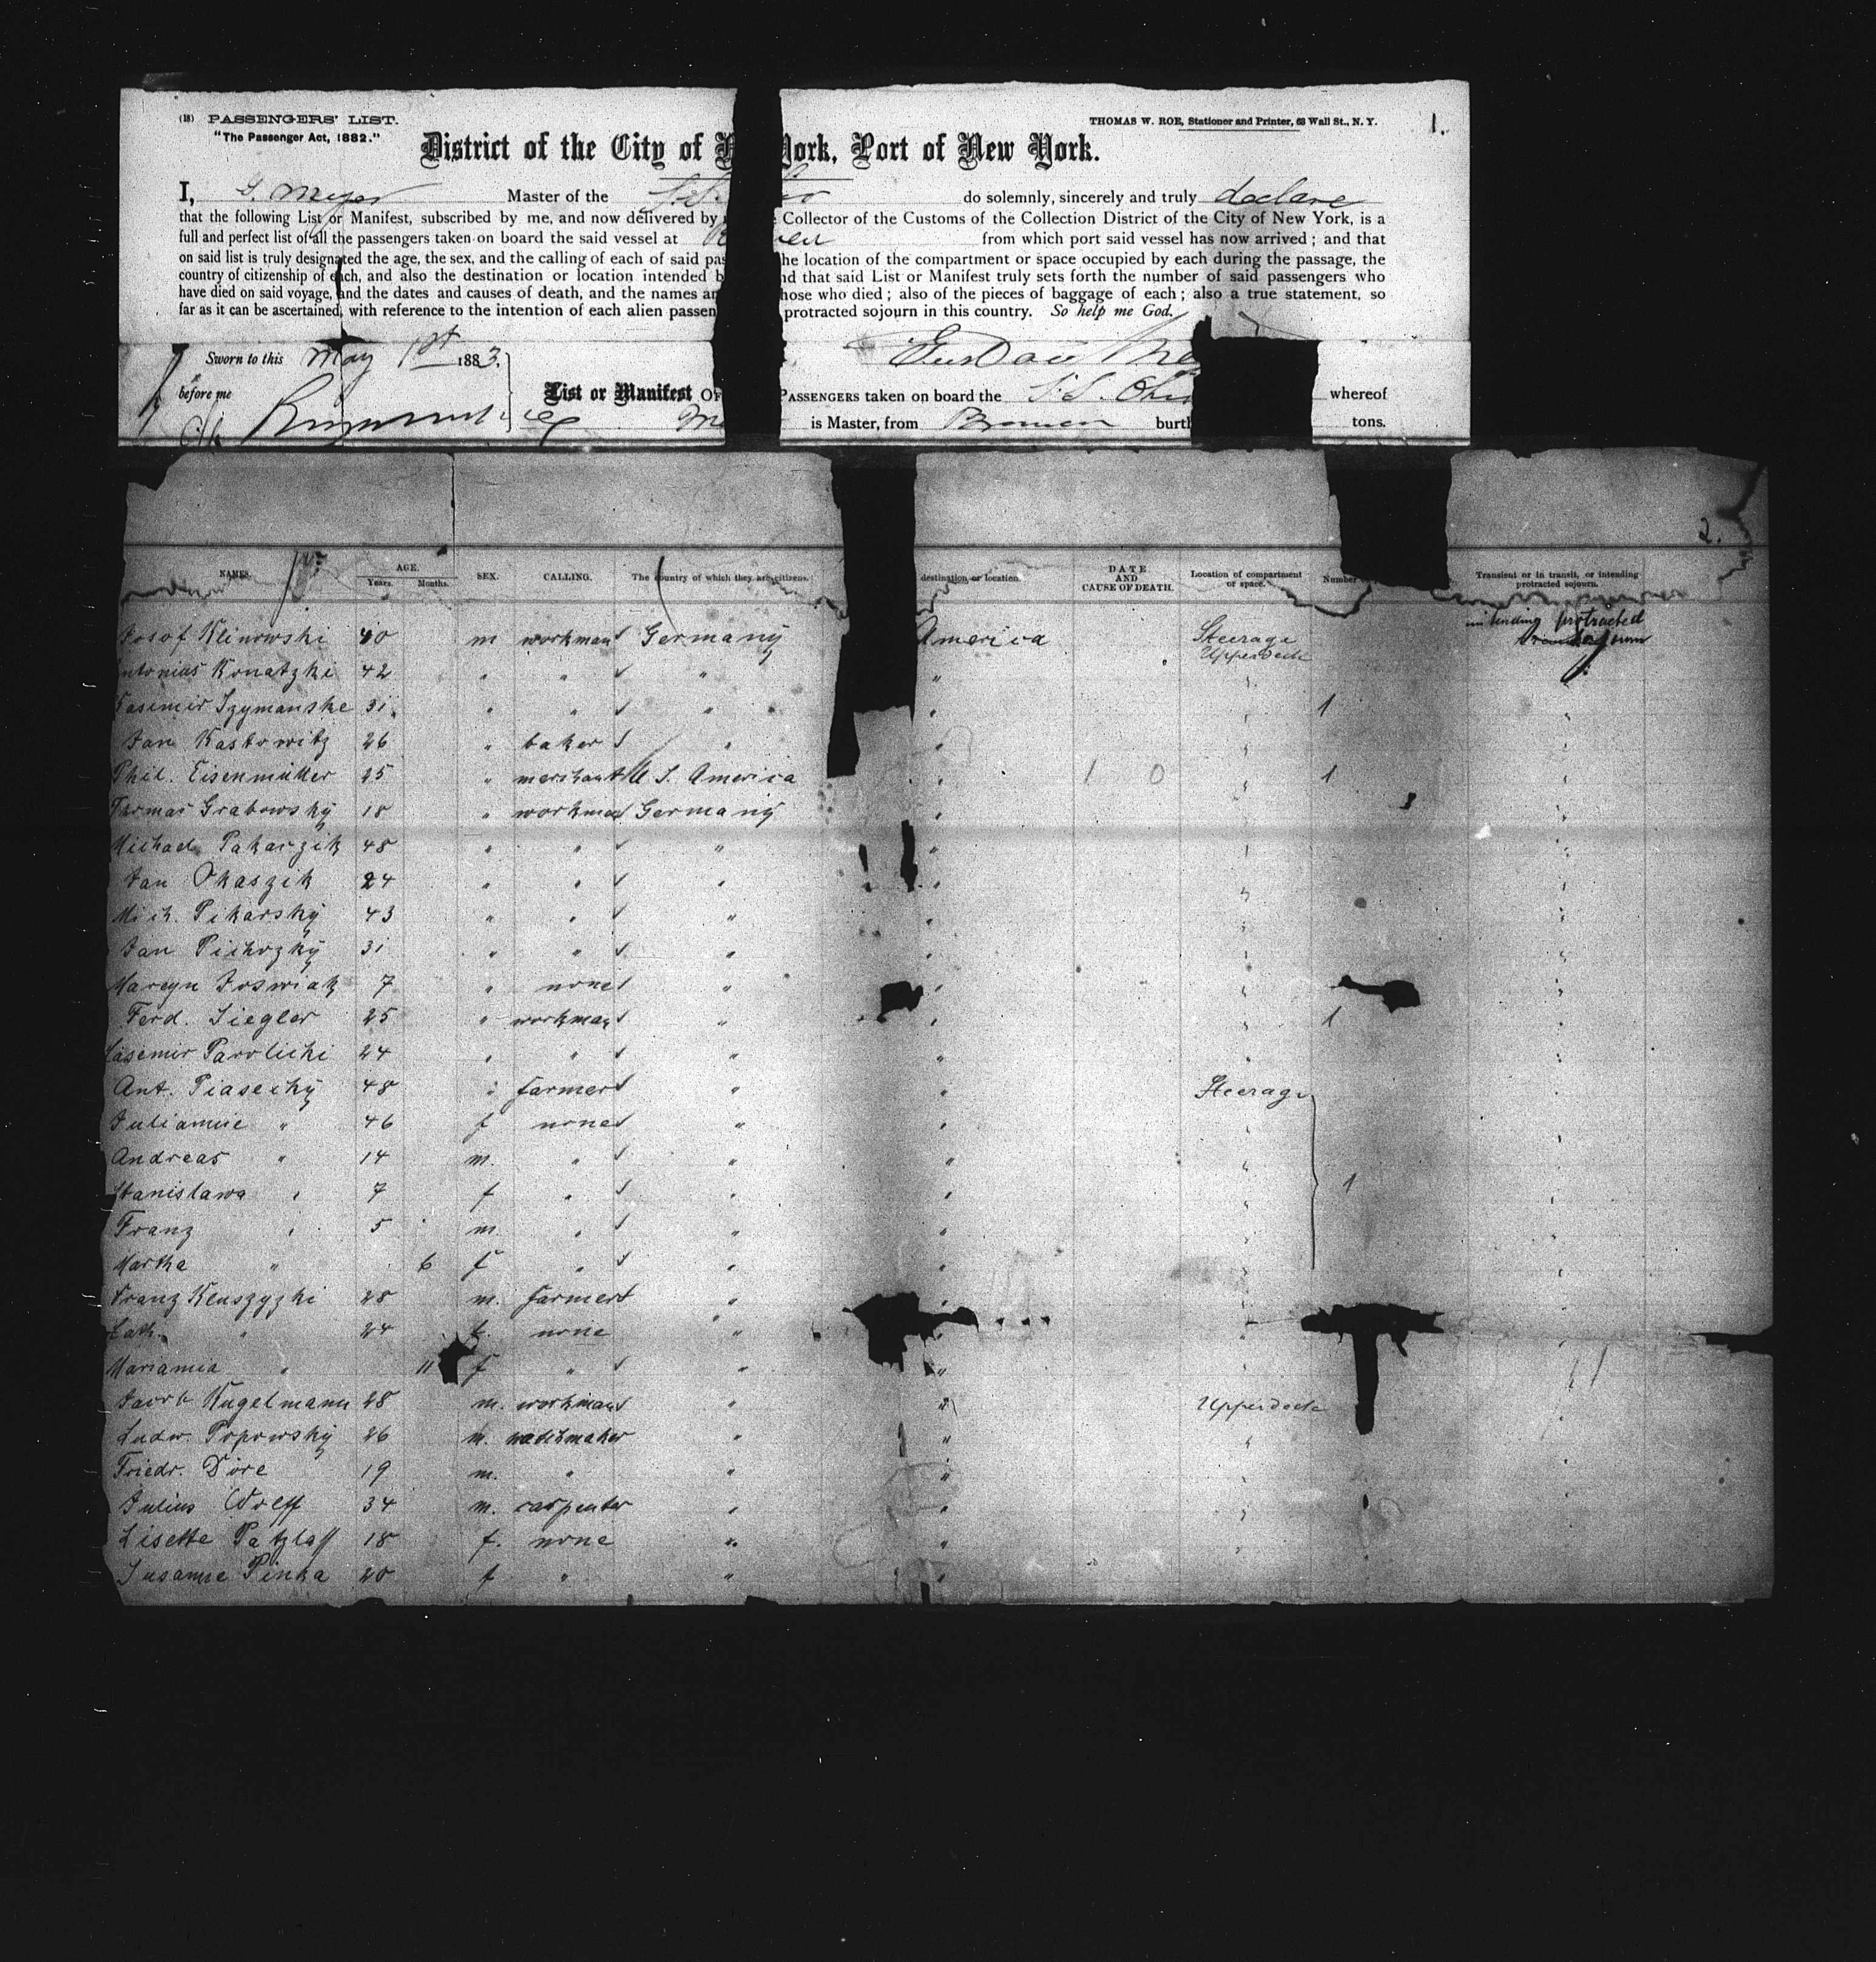 (18) PASSENGERS' LIST.
"The Passenger Act, 1882."
THOMAS W. ROE, Stationer and Printer, 63 Wall St., N. Y.
1.
District of the City of N York, Port of New York.
I, G. Meyer Master of the S.S. do solemnly, sincerely and truly declare
that the following List or Manifest, subscribed by me, and now delivered by Collector of the Customs of the Collection District of the City of New York, is a
full and perfect list of all the passengers taken on board the said vessel at B men from which port said vessel has now arrived; and that
on said list is truly designated the age, the sex, and the calling of each of said pas he location of the compartment or space occupied by each during the passage, the
country of citizenship of each, and also the destination or location intended b nd that said List or Manifest truly sets forth the number of said passengers who
have died on said voyage, and the dates and causes of death, and the names an hose who died; also of the pieces of baggage of each; also a true statement, so
far as it can be ascertained, with reference to the intention of each alien passen protracted sojourn in this country. So help me God.
Sworn to this May 1st 1883. Gustav Me
before me
List or Manifest OF PASSENGERS taken on board the S.S. Ohio whereof
Me is Master, from Bremen burth tons.
2.
NAMES. AGE. Years. Months. SEX. CALLING. The country of which they are citizens. destination or location. DATE AND CAUSE OF DEATH. Location of compartment or space. Number Transient or in transit, or intending protracted sojourn.
Josef Klinowski 40 m workman Germany America Steerage Upperdeck intending protracted sojourn
Antonius Konatzki 42 " " " "
Kasimir Szymanske 31 " " " " 1
Jan Kastowitz 26 " baker " "
Phil. Eisenmüller 25 " merchant U.S. America " 1 0 1
Thomas Grabowsky 18 " workman Germany "
Michael Pakarzik 48 " " " "
Jan Okaszik 24 " " " "
Mich. Pikarsky 43 " " " "
Jan Pichozky 31 " " " "
Marcyn Joswiak 7 " none " "
Ferd. Siegler 25 " workman " " 1
Casemir Pavolicki 24 " " " "
Ant. Piasecky 48 " farmer " " Steerage
Juliamie " 46 f none " "
Andreas " 14 m. " " "
Stanislawa " 7 f " " " 1
Franz " 5 m. " " "
Martha " 6 f " " "
Franz Kluszyzki 28 m. farmer " "
Cath. " 24 f. none " "
Mariamia " 11 f " " "
Jacob Kugelmann 28 m. workman " " Upperdeck
Ludw. Popowsky 26 m. watchmaker " "
Friedr. Dore 19 m. " " "
Julius Wolff 34 m. carpenter " "
Lisette Patzlaff 18 f. none " "
Susanne Pinka 20 f " " "